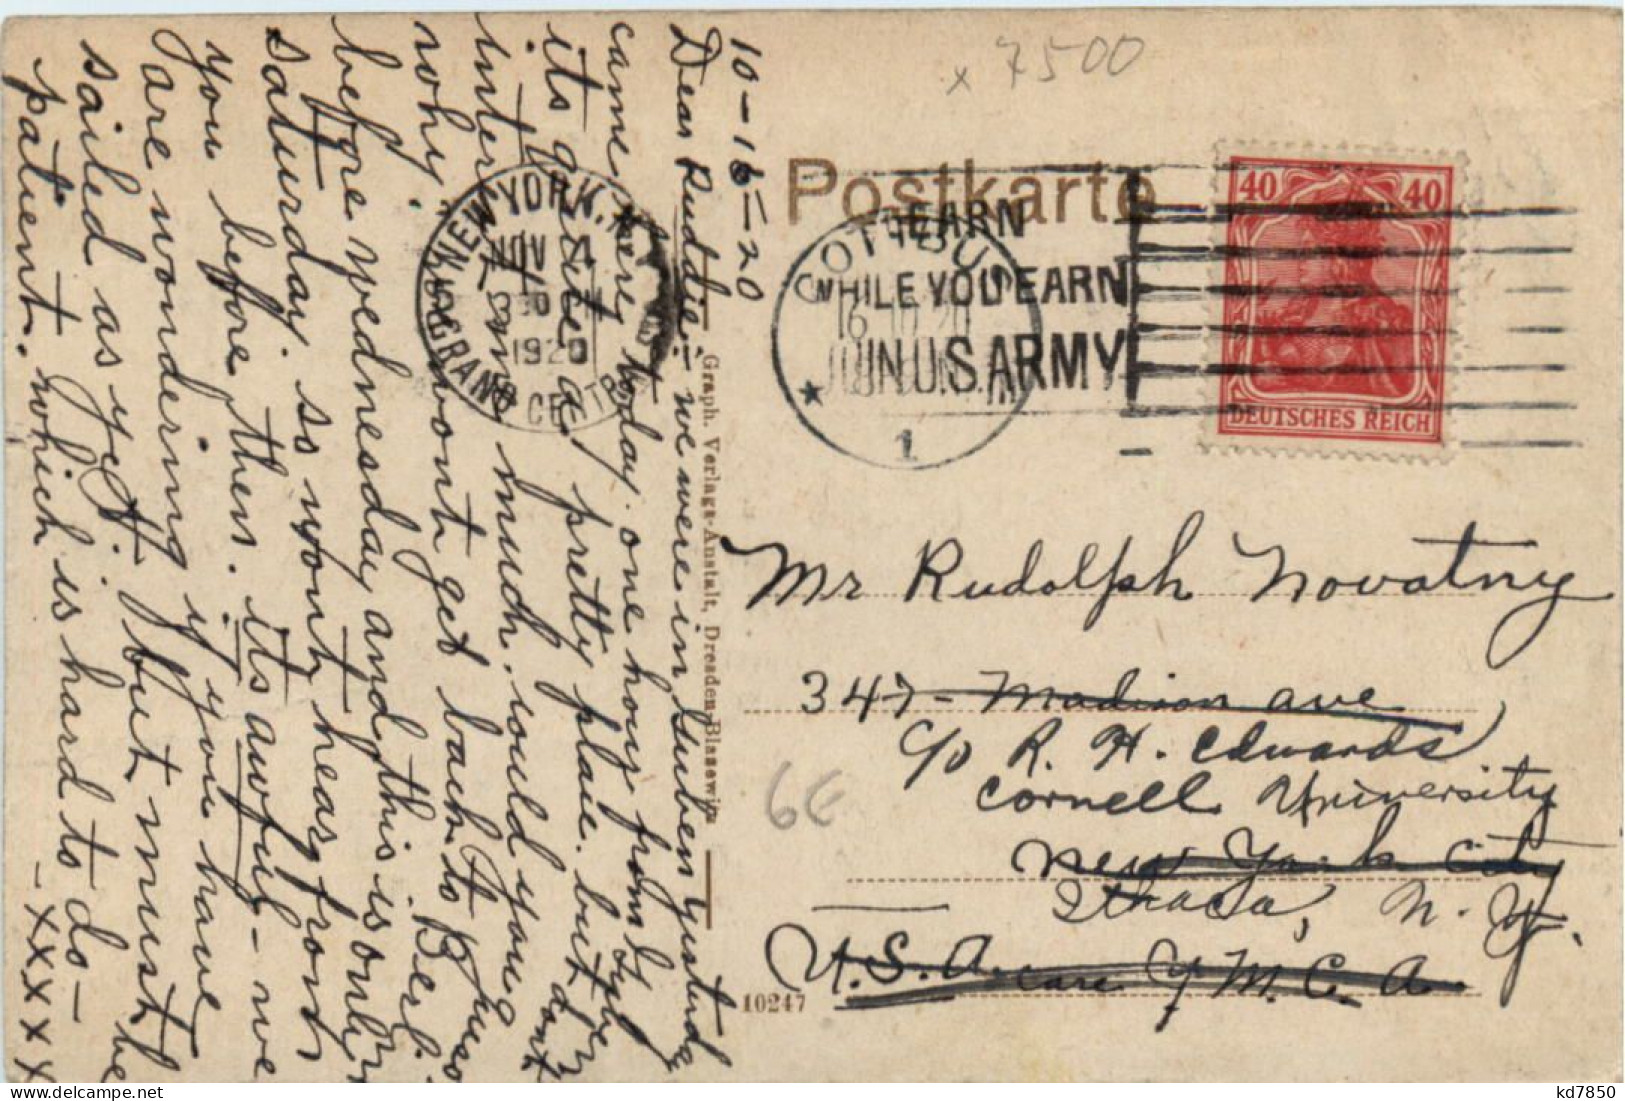 10-16-20
Dear Ruddie:- we were in Guben yesterday
came here today. one hour from Guben
its quite a pretty place. but dont
interest me much. would you?
nohy. wont get back to Berlin
before wednesday and this is only
saturday. so wont hear from
you before then. its awful - we
are wondering if you have
sailed as yet. but must be
patient. which is hard to do -
- x x x x
Graph. Verlags-Anstalt, Dresden-Blasewitz
10247
x 7500
Postkarte
NEW YORK, N.Y.
NOV 4
1920
GRAND CENTRAL
COTTBUS
16.10.20
* 1
LEARN
WHILE YOU EARN
JOIN U.S. ARMY
40 40
DEUTSCHES REICH
Mr Rudolph Novatny
347 - Madison ave
c/o R. H. Edwards
Cornell University
New York City
Ithaca, N. Y.
U.S.A. care Y M. C. A.
6E
kd7850